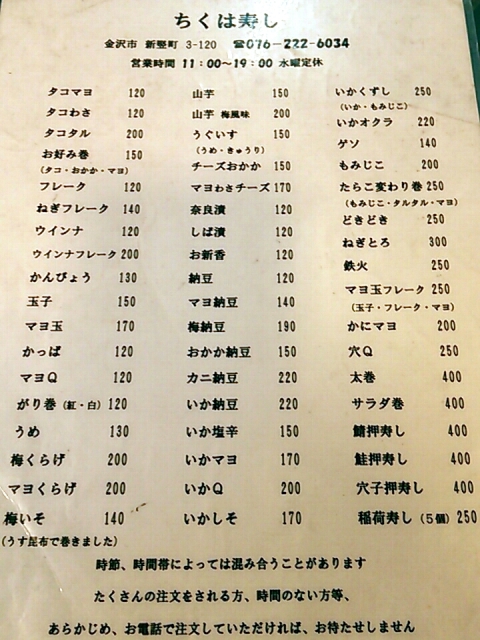 ちくは寿し
金沢市 新竪町 3-120 ☎076-222-6034
営業時間 11:00～19:00 水曜定休
タコマヨ 120
タコわさ 120
タコタル 200
お好み巻 150
(タコ・おかか・マヨ)
フレーク 120
ねぎフレーク 140
ウインナ 120
ウインナフレーク 200
かんぴょう 130
玉子 150
マヨ玉 170
かっぱ 120
マヨQ 120
がり巻(紅・白) 120
うめ 130
梅くらげ 200
マヨくらげ 200
梅いそ 140
(うす昆布で巻きました)
山芋 150
山芋 梅風味 200
うぐいす 150
(うめ・きゅうり)
チーズおかか 150
マヨわさチーズ 170
奈良漬 120
しば漬 120
お新香 120
納豆 120
マヨ納豆 140
梅納豆 190
おかか納豆 150
カニ納豆 220
いか納豆 220
いか塩辛 150
いかマヨ 170
いかQ 200
いかしそ 170
いかくずし 250
(いか・もみじこ)
いかオクラ 220
ゲソ 140
もみじこ 200
たらこ変わり巻 250
(もみじこ・タルタル・マヨ)
どきどき 250
ねぎとろ 300
鉄火 250
マヨ玉フレーク 250
(玉子・フレーク・マヨ)
かにマヨ 200
穴Q 250
太巻 400
サラダ巻 400
鯖押寿し 400
鮭押寿し 400
穴子押寿し 400
稲荷寿し(5個) 250
時節、時間帯によっては混み合うことがあります
たくさんの注文をされる方、時間のない方等、
あらかじめ、お電話で注文していただければ、お待たせしません